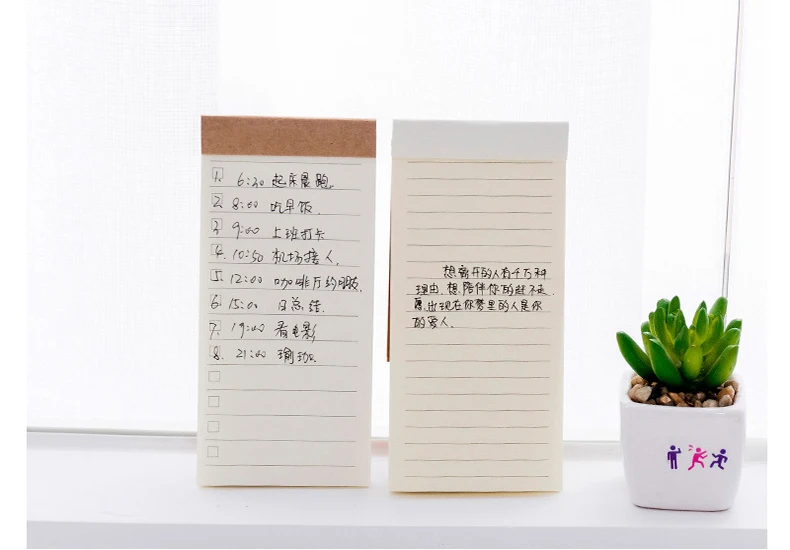 1. 6:30 起床晨跑.
2. 8:00 吃早饭.
3. 9:00 上班打卡
4. 10:50 机场接人.
5. 12:00 咖啡厅约朋友.
6. 15:00 日总结.
7. 19:00 看电影
8. 21:00 瑜珈.
想离开的人有千万种
理由.想陪伴你的赶不走
出现在你梦里的人是你
的爱人.